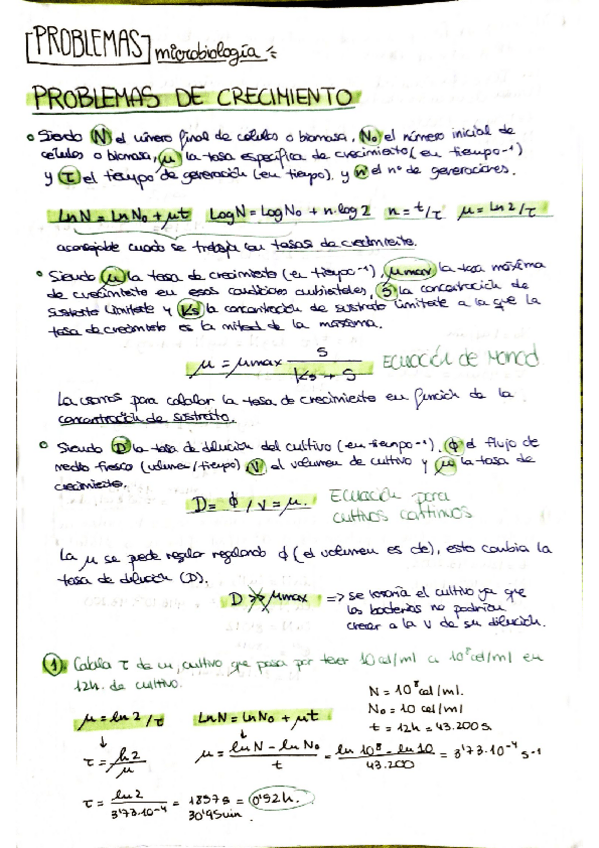 [PROBLEMAS] microbiología
PROBLEMAS DE CRECIMIENTO
• Siendo N el número final de células o biomasa, No el número inicial de
células o biomasa, μ la tasa específica de crecimiento (en tiempo⁻¹)
y τ el tiempo de generación (en tiempo), y n el nº de generaciones.
LnN = LnNo + μt LogN = LogNo + n·log2 n = t/τ μ = Ln2/τ
aconsejable cuando se trabaja con tasas de crecimiento.
• Siendo μ la tasa de crecimiento (en tiempo⁻¹), μmax la tasa máxima
de crecimiento en esas condiciones ambientales, S la concentración de
sustrato limitante y Ks la concentración de sustrato limitante a la que la
tasa de crecimiento es la mitad de la máxima.
μ = μmax S / (Ks + S) Ecuación de Monod
La usamos para calcular la tasa de crecimiento en función de la
concentración de sustrato.
• Siendo D la tasa de dilución del cultivo (en tiempo⁻¹), ϕ el flujo de
medio fresco (volumen/tiempo) V el volumen de cultivo y μ la tasa de
crecimiento.
D = ϕ / V = μ. Ecuación para
cultivos continuos
La μ se puede regular regulando ϕ (el volumen es cte), esto cambia la
tasa de dilución (D).
D >> μmax => se lavaría el cultivo ya que
las bacterias no podrían
crecer a la v de su dilución.
1) Calcula τ de un cultivo que pasa por tener 10 cel/ml a 10⁸ cel/ml en
12h. de cultivo.
N = 10⁸ cel/ml.
No = 10 cel/ml
t = 12h = 43.200s.
μ = ln2/τ LnN = LnNo + μt
τ = ln2/μ μ = (lnN - lnNo)/t = (ln 10⁸ - ln 10)/43.200 = 3'73·10⁻⁴ s⁻¹
τ = ln2/3'73·10⁻⁴ = 1857s = 0'52h.
30'95min.